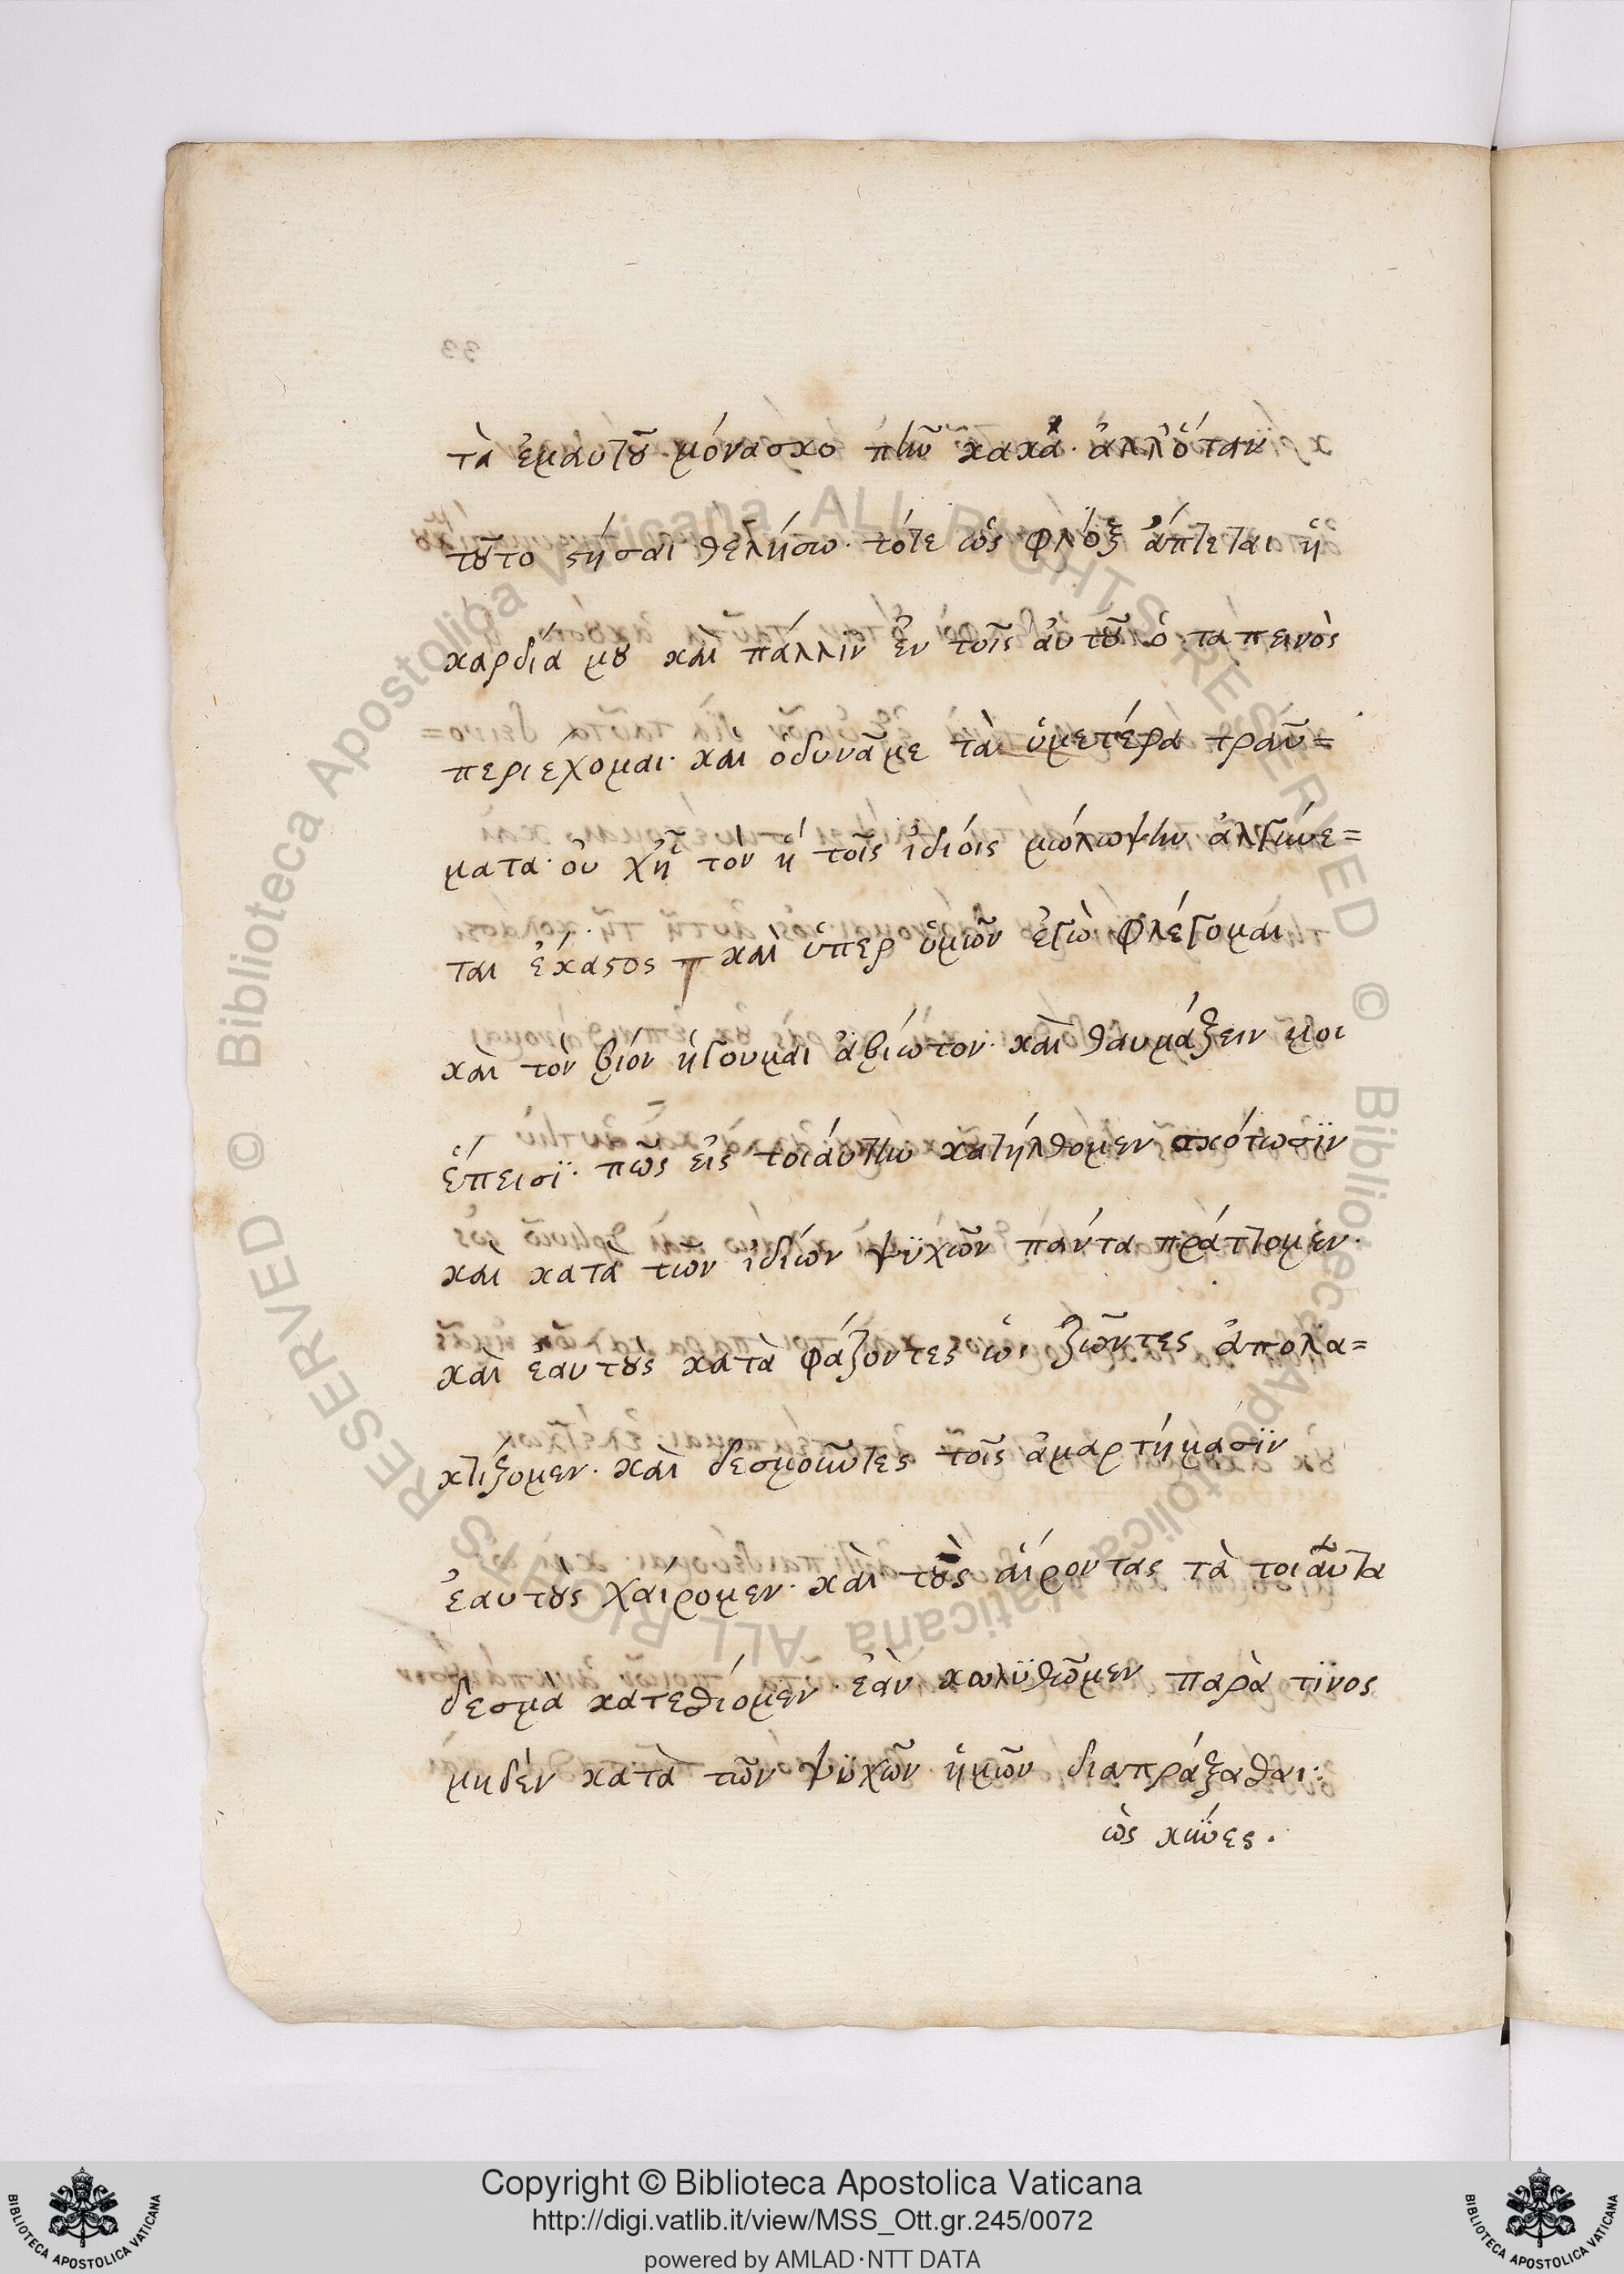 τὰ ἐμαυτοῦ μόνα σκο πῶν κακά· ἀλλ' ὅταν
τοῦτο στῆσαι θελήσω· τότε ὡς φλὸξ ἅπτεται ἡ
καρδία μου καὶ πάλλιν ἐν τοῖς αὐτοῦ ὁ ταπεινὸς
περιέχομαι· και ὀδυνᾶμε τὰ ὑμετέρα τραῦ=
ματα· οὐ χῆ τον ἢ τοῖς ἰδίοις μώλωψιν ἀλγύνε=
ται ἕκαστος καὶ ὑπερ ὑμῶν ἐγὼ φλέγομαι
καὶ τὸν βίον ἡγουμαι ἀβίωτον· καὶ θαυμάζειν μοι
ἔπεισϊ· πῶς εἰς τοιάυτην κατήλθομεν σκότωσϊν
καὶ κατὰ τῶν ἰδίων ψϋχῶν πάντα πράττομεν·
καὶ ἑαυτοὺς κατὰ φάζοντες ὡς ζῶντες ἀπολα=
κτίζομεν· καὶ δεσμοῦντες τοῖς ἁμαρτήμασϊν
ἑαυτοὺς χαίρομεν· καὶ τοὺς αἴροντας τὰ τοιαῦτα
δεσμὰ κατεσθίομεν· ἐὰν κωλϋθῶμεν παρὰ τϊνος
μηδὲν κατὰ τῶν ψϋχῶν ἡμῶν διαπράξασθαι·
ὡς κύνες.
33
Copyright © Biblioteca Apostolica Vaticana
http://digi.vatlib.it/view/MSS_Ott.gr.245/0072
powered by AMLAD·NTT DATA
BIBLIOTECA APOSTOLICA VATICANA
BIBLIOTECA APOSTOLICA VATICANA
© Biblioteca Apostolica Vaticana ALL RIGHTS RESERVED © Biblioteca Apostolica Vaticana ALL RIGHTS RESERVED